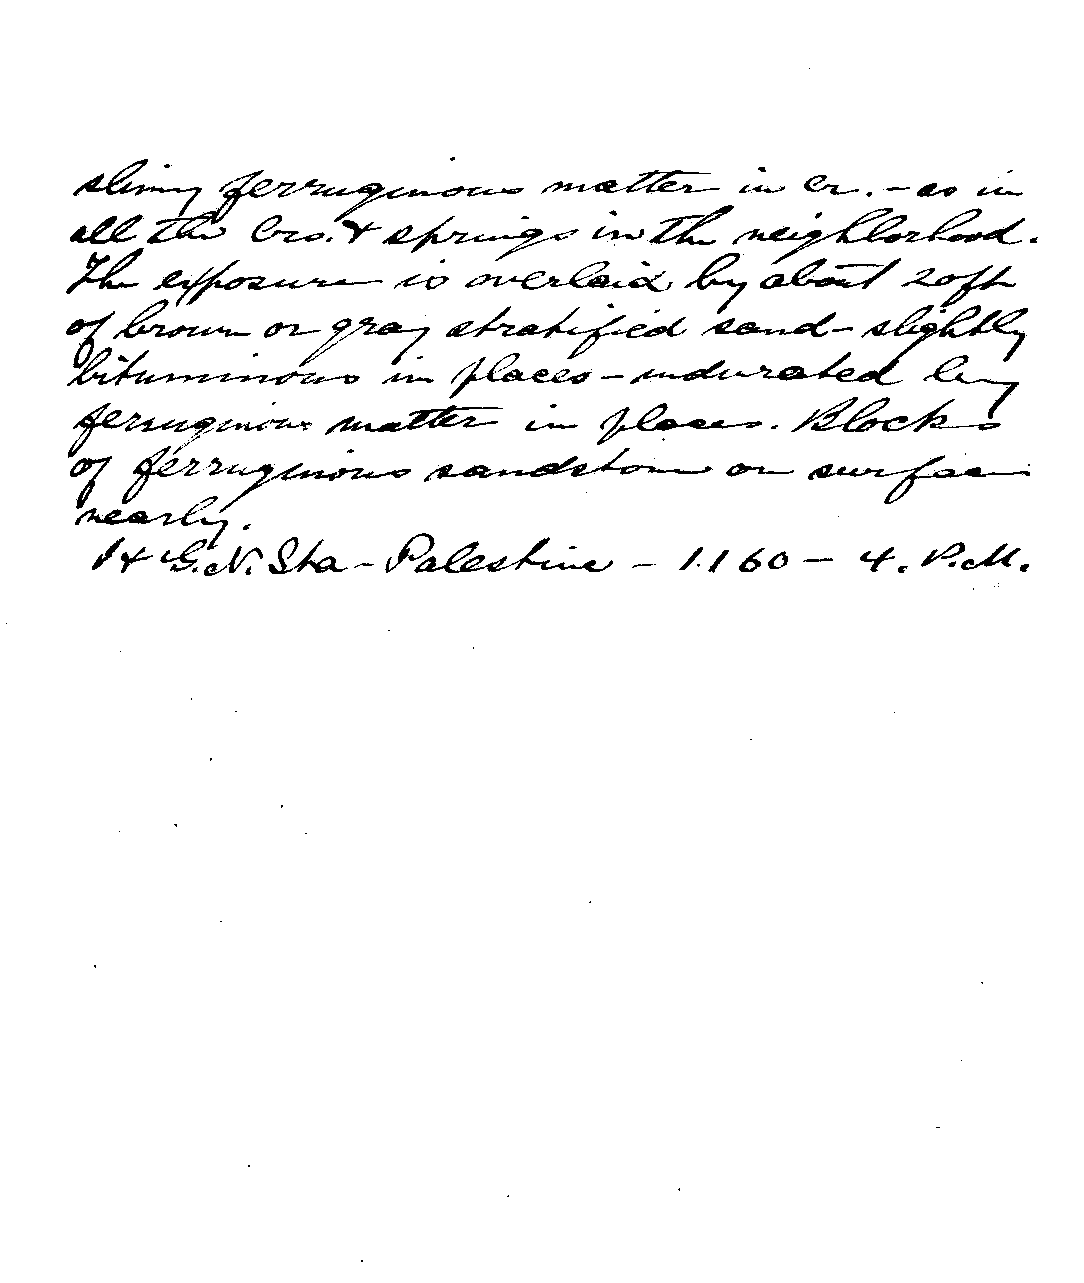 slimy ferruginous matter in cr. - as in
all the Crs. & springs in the neighborhood.
The exposure is overlaid by about 20 ft
of brown or gray stratified sand - slightly
bituminous in places - indurated by
ferruginous matter in places. Blocks
of ferruginous sandstone on surface
nearly.
I & G.N. Sta - Palestine - 1160 - 4. P.M.